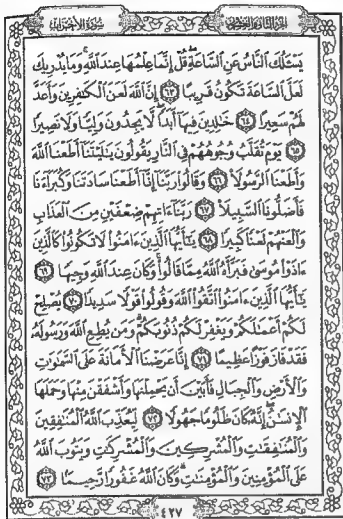 الجزء الثاني والعشرون سورة الأحزاب
يَسْـَٔلُكَ ٱلنَّاسُ عَنِ ٱلسَّاعَةِ قُلْ إِنَّمَا عِلْمُهَا عِندَ ٱللَّهِ وَمَا يُدْرِيكَ
لَعَلَّ ٱلسَّاعَةَ تَكُونُ قَرِيبًا ٦٣ إِنَّ ٱللَّهَ لَعَنَ ٱلْكَـٰفِرِينَ وَأَعَدَّ
لَهُمْ سَعِيرًا ٦٤ خَـٰلِدِينَ فِيهَآ أَبَدًا لَّا يَجِدُونَ وَلِيًّا وَلَا نَصِيرًا
٦٥ يَوْمَ تُقَلَّبُ وُجُوهُهُمْ فِى ٱلنَّارِ يَقُولُونَ يَـٰلَيْتَنَآ أَطَعْنَا ٱللَّهَ
وَأَطَعْنَا ٱلرَّسُولَا۠ ٦٦ وَقَالُوا۟ رَبَّنَآ إِنَّآ أَطَعْنَا سَادَتَنَا وَكُبَرَآءَنَا
فَأَضَلُّونَا ٱلسَّبِيلَا۠ ٦٧ رَبَّنَآ ءَاتِهِمْ ضِعْفَيْنِ مِنَ ٱلْعَذَابِ
وَٱلْعَنْهُمْ لَعْنًا كَبِيرًا ٦٨ يَـٰٓأَيُّهَا ٱلَّذِينَ ءَامَنُوا۟ لَا تَكُونُوا۟ كَٱلَّذِينَ
ءَاذَوْا۟ مُوسَىٰ فَبَرَّأَهُ ٱللَّهُ مِمَّا قَالُوا۟ وَكَانَ عِندَ ٱللَّهِ وَجِيهًا ٦٩
يَـٰٓأَيُّهَا ٱلَّذِينَ ءَامَنُوا۟ ٱتَّقُوا۟ ٱللَّهَ وَقُولُوا۟ قَوْلًا سَدِيدًا ٧٠ يُصْلِحْ
لَكُمْ أَعْمَـٰلَكُمْ وَيَغْفِرْ لَكُمْ ذُنُوبَكُمْ وَمَن يُطِعِ ٱللَّهَ وَرَسُولَهُۥ
فَقَدْ فَازَ فَوْزًا عَظِيمًا ٧١ إِنَّا عَرَضْنَا ٱلْأَمَانَةَ عَلَى ٱلسَّمَـٰوَٰتِ
وَٱلْأَرْضِ وَٱلْجِبَالِ فَأَبَيْنَ أَن يَحْمِلْنَهَا وَأَشْفَقْنَ مِنْهَا وَحَمَلَهَا
ٱلْإِنسَـٰنُ إِنَّهُۥ كَانَ ظَلُومًا جَهُولًا ٧٢ لِّيُعَذِّبَ ٱللَّهُ ٱلْمُنَـٰفِقِينَ
وَٱلْمُنَـٰفِقَـٰتِ وَٱلْمُشْرِكِينَ وَٱلْمُشْرِكَـٰتِ وَيَتُوبَ ٱللَّهُ
عَلَى ٱلْمُؤْمِنِينَ وَٱلْمُؤْمِنَـٰتِ وَكَانَ ٱللَّهُ غَفُورًا رَّحِيمًۢا ٧٣
٤٢٧